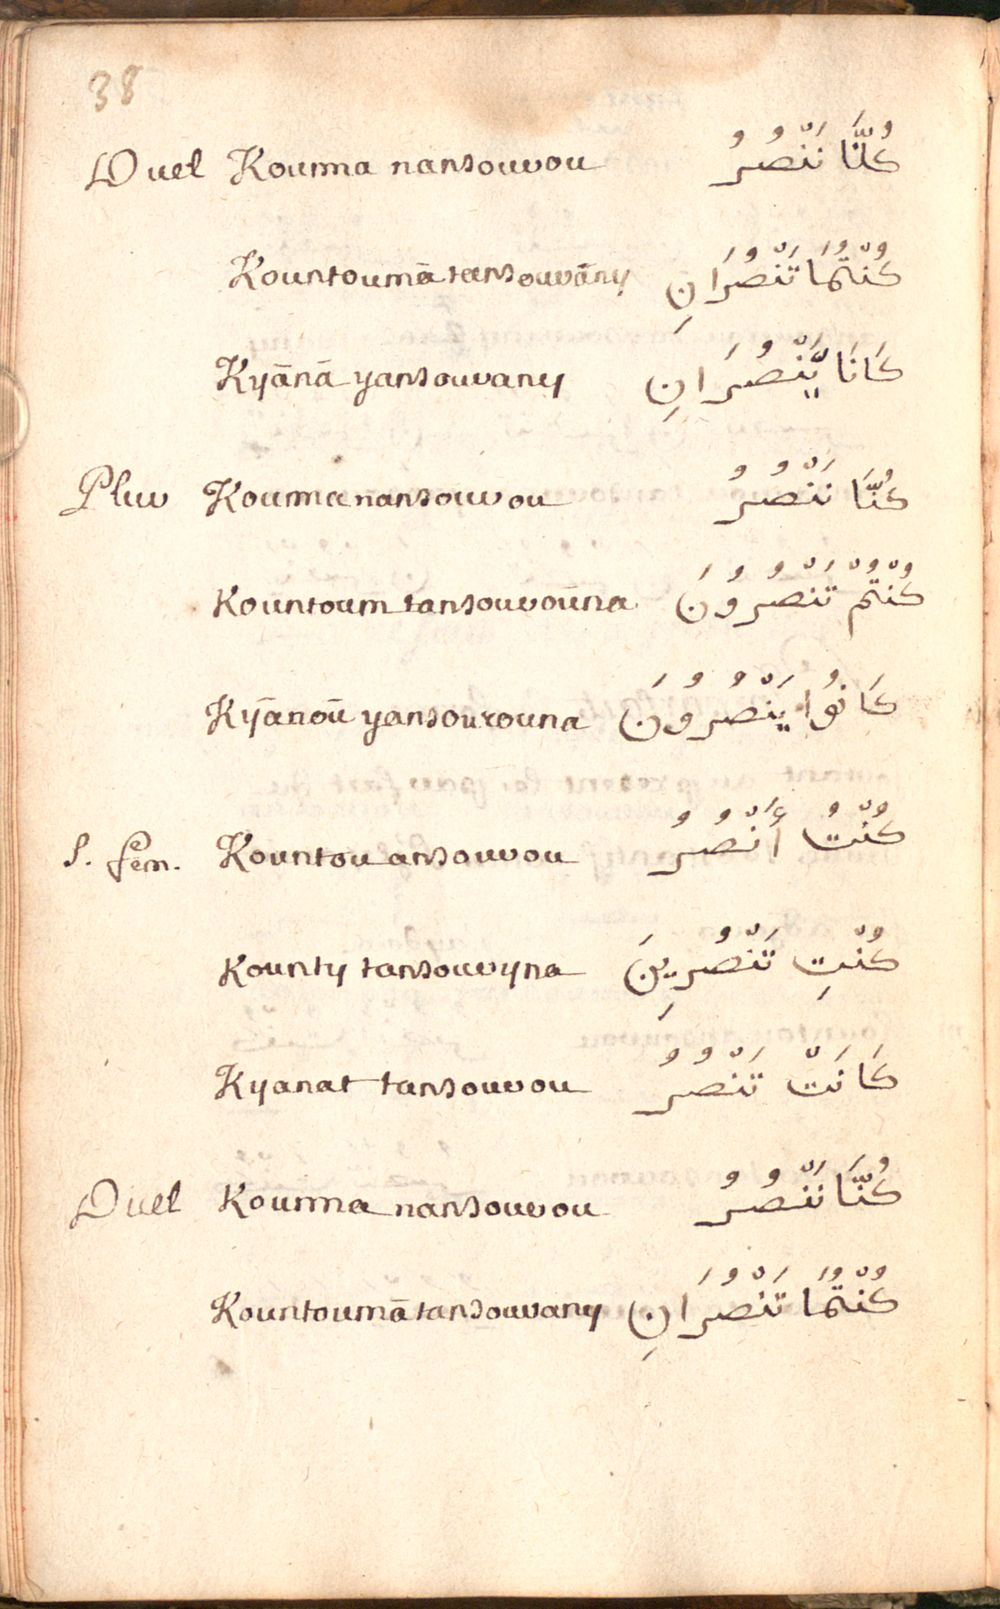 38
Duel Kounna nansourou كُنَّا نَنْصُرُ
Kountoumā tansourāny كُنْتُمَا تَنْصُرَانِ
Kyānā yansourany كَانَا يَنْصُرَانِ
Plur Kounna nansourou كُنَّا نَنْصُرُ
Kountoum tansouroūna كُنْتُمْ تَنْصُرُونَ
Kyānoū yansourouna كَانُوا يَنْصُرُونَ
S. fem. Kountou ansourou كُنْتُ أَنْصُرُ
Kounty tansouryna كُنْتِ تَنْصُرِينَ
Kyanat tansourou كَانَتْ تَنْصُرُ
Duel Kounna nansourou كُنَّا نَنْصُرُ
Kountoumā tansourany كُنْتُمَا تَنْصُرَانِ